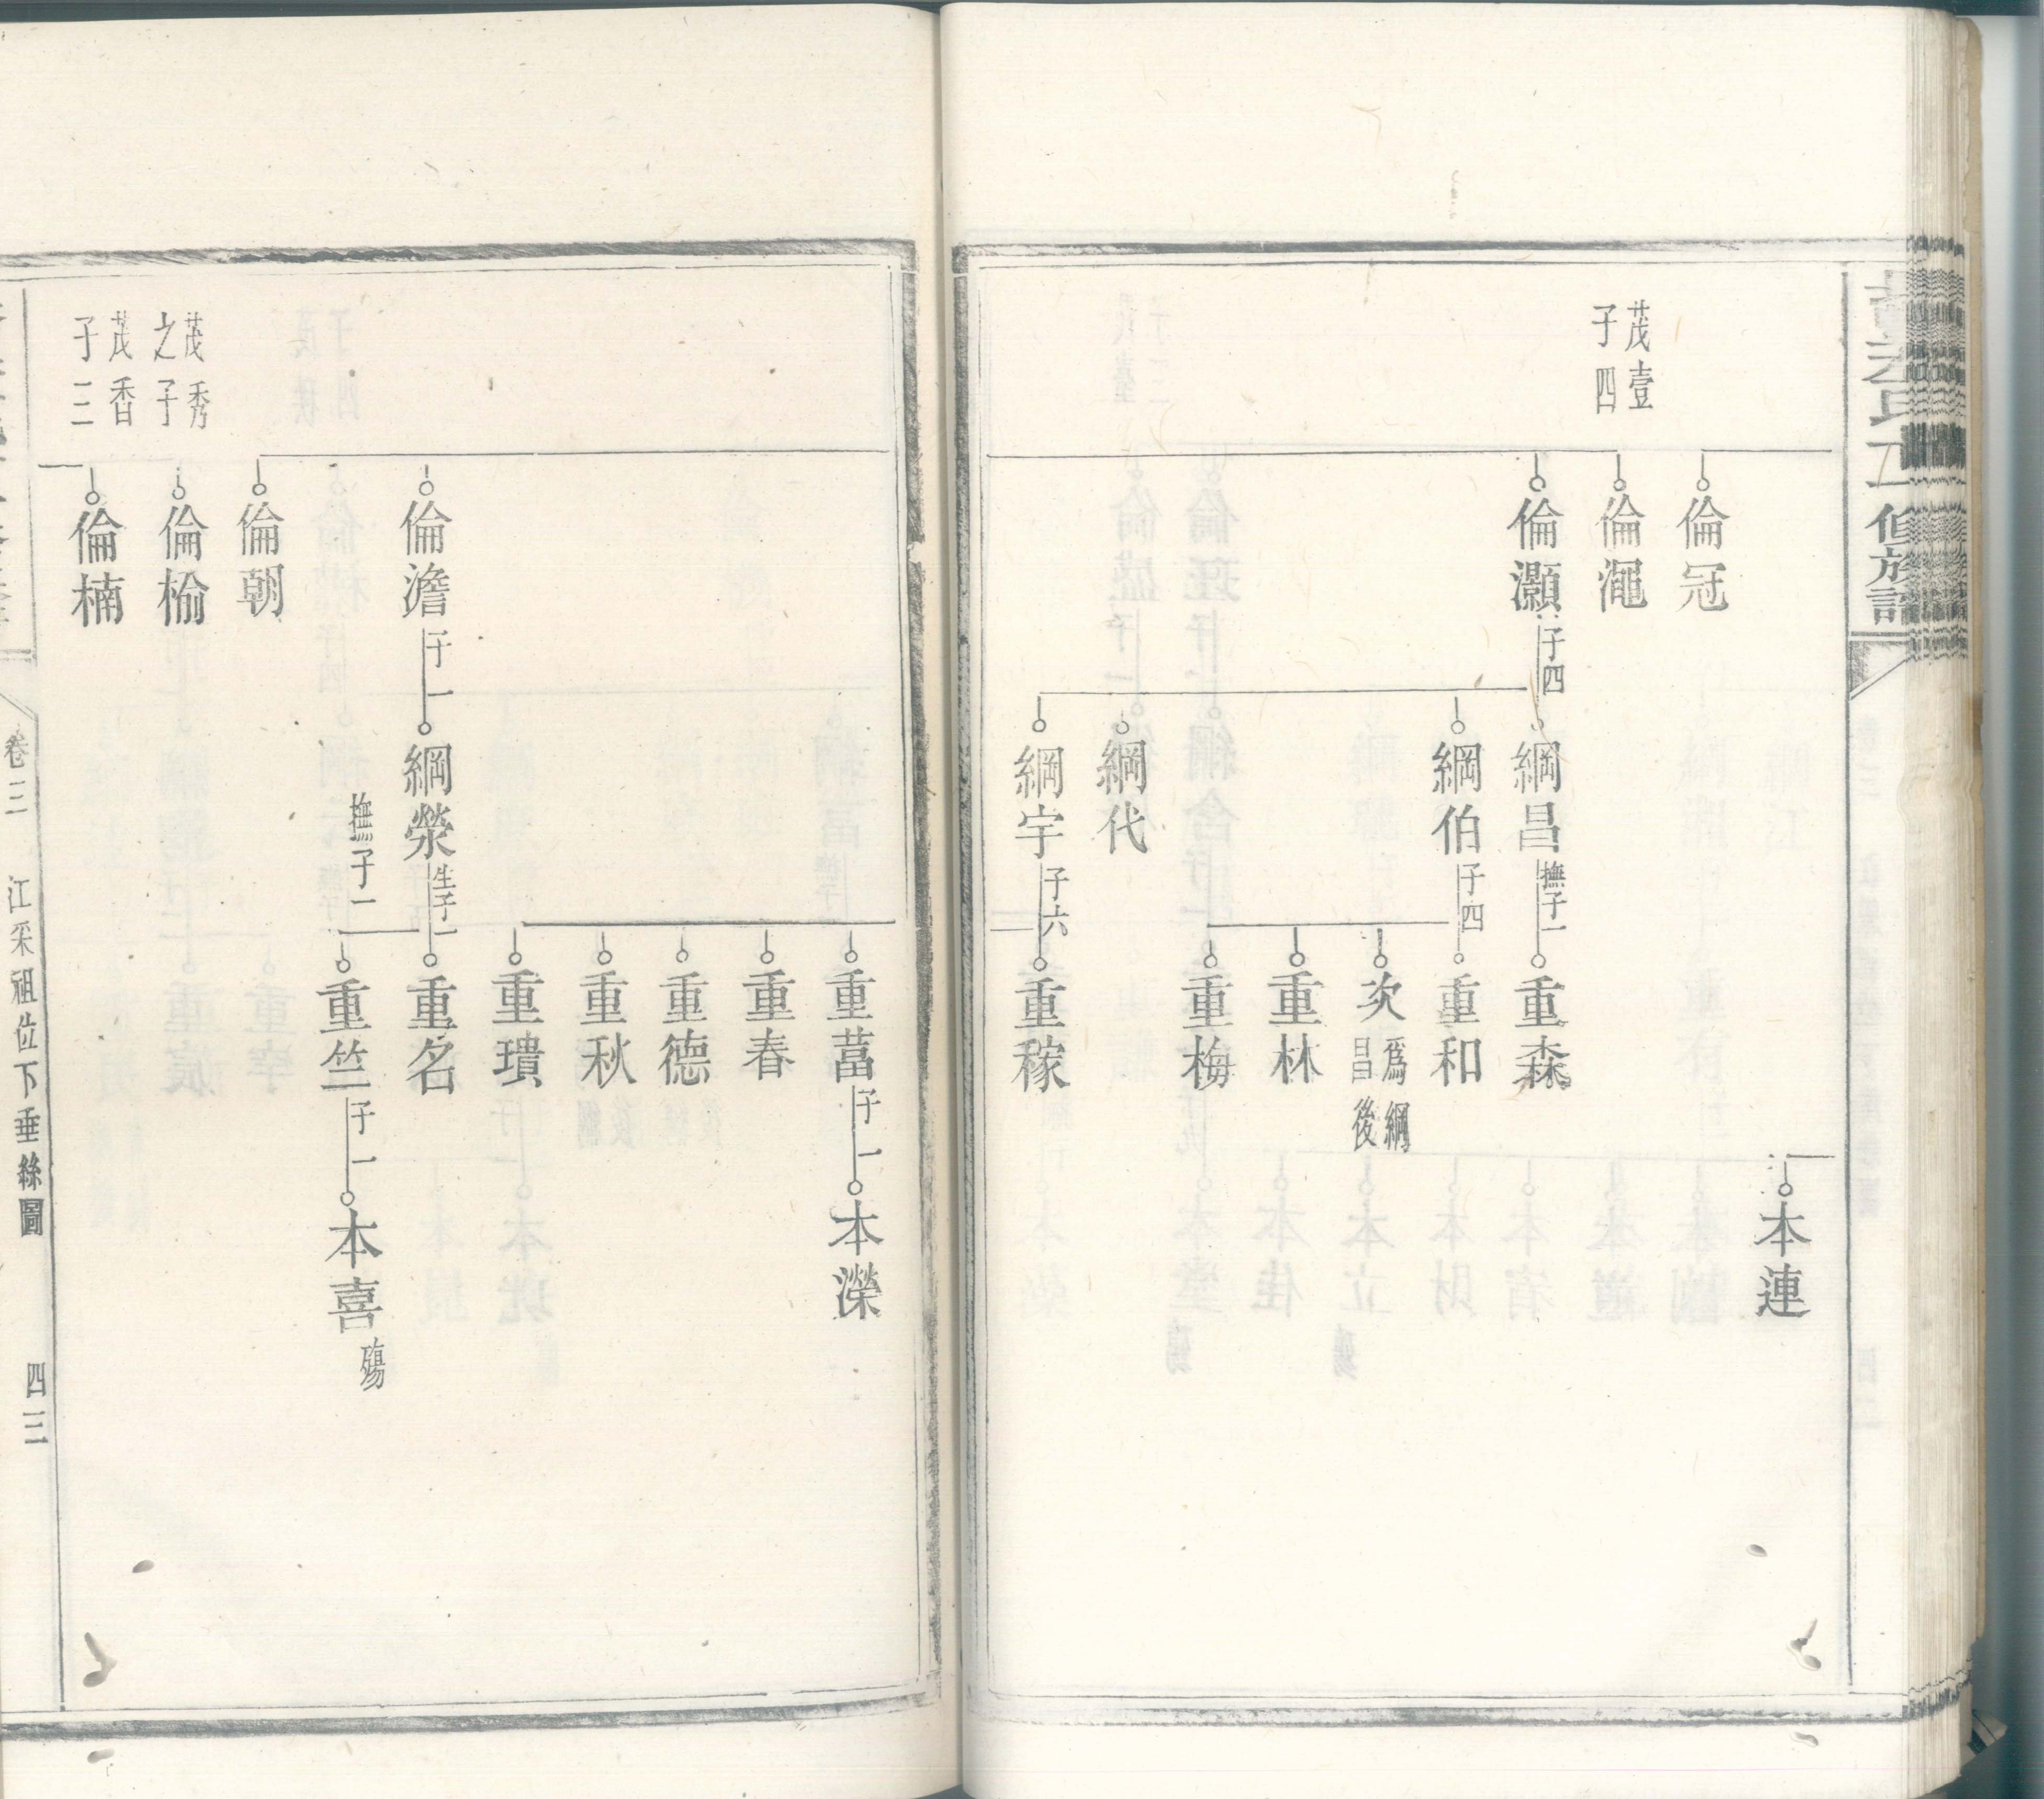 修族譜
茂壹
子四
倫冠
倫澠
倫灝
子四
綱昌
撫子一
重森
綱伯
子四
重和
次
爲綱
昌後
重林
重梅
綱代
綱宇
子六
重稼
本連
重萬
子一
本濚
重春
重德
重秋
重璝
倫澹
子一
綱榮
生子一
重名
撫子一
重竺
子一
本喜
殤
倫朝
茂秀
之子
倫榆
茂香
子三
倫楠
卷三
江采祖位下垂絲圖
四三